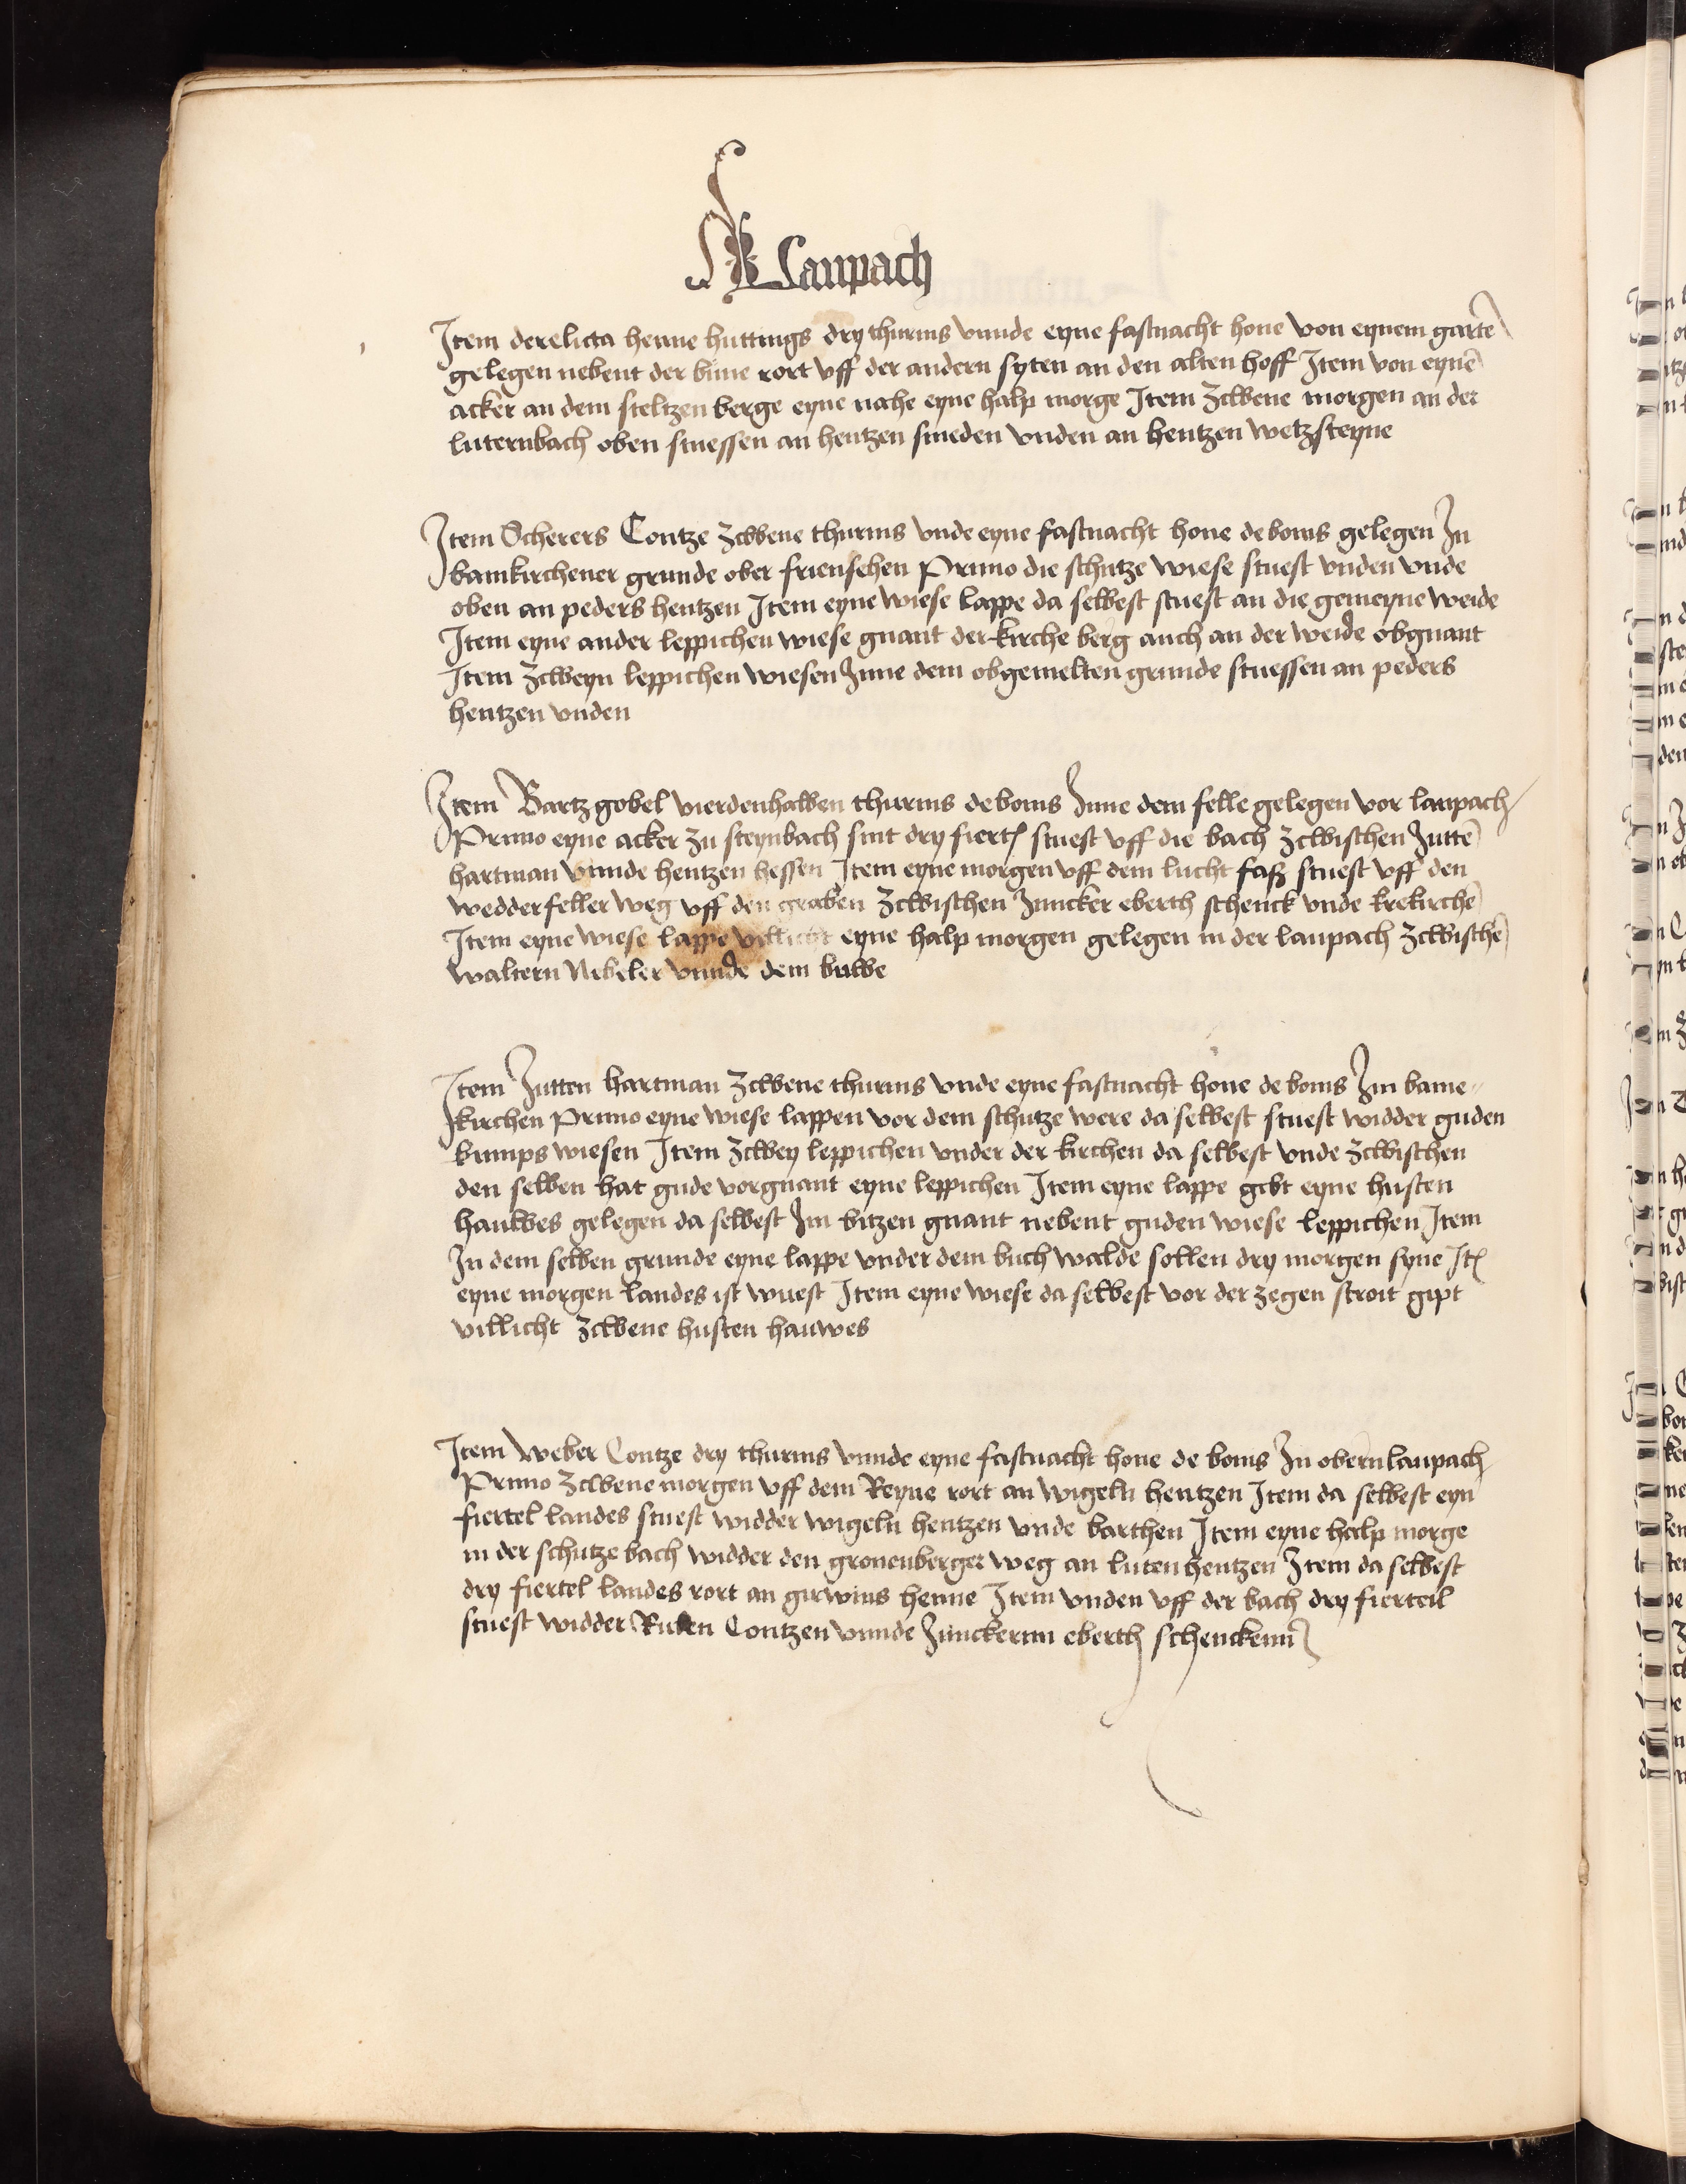 Laupach
Item derelicta henne huttings dry thurnis vnnde eyne fastnacht hone von eynem gartē
gelegen nebent der bune rort vff der andern syten an den alten hoff Item von eynē
acker an dem steltzen berge eyne nahe eyne halp morge Item zcwene morgen an der
luternbach oben stuessen an hentzen smeden vnden an hentzen wetzsteyne
Item Scherers Contze zcwene thurnis vnde eyne fastnacht hone de bonis gelegen In
bamkirchener grunde ober friensehen Primo die schutze wiese stuest vnden vnde
oben an peders hentzen Item eyne wiese lappe da selbest stuest an die gemeyne weide
Item eyne ander leppichen wiese gnant der kirche berg auch an der weide obgnant
Item zcweyn leppichen wiesen Inne dem obgemelten grunde stuessen an peders
hentzen vnden
Item Bartz gobel vierdenhalben thurnis de bonis Inne dem felle gelegen vor laupach
Primo eyne acker zu steynbach sint dry fiert stuest vff die bach zcwischen Juttē
hartman vnnde hentzen hessen Item eyne morgen vff dem lucht faß stuest vff den
wedderfeller weg vff den graben zcwischen Juncker eberth schenck vnde krekirchē
Item eyne wiese lappe villicht eyne halp morgen gelegen in der laupach zcwischē
waltern Nibeler vnnde dem buwe
Item Jutten hartman zcwene thurnis vnde eyne fastnacht hone de bonis Im bame
kirchen Primo eyne wiese lappen vor dem schutze were da selbest stuest widder guden
kumps wiesen Item zcwey leppichen vnder der kirchen da selbest vnde zcwischen
den selben hat gude vorgnant eyne leppichen Item eyne lappe gibt eyne husten
hauwes gelegen da selbest Im bitzen gnant nebent guden wiese leppichen Item
In dem selben grunde eyne lappe vnder dem buch walde sollen dry morgen syne It
eyne morgen landes ist wuest Item eyne wiese da selbest vor der zegen stroit gipt
villicht zcwene husten hauwes
Item weber Contze dry thurnis vnnde eyne fastnacht hone de bonis In obern laupach
Primo zcwene morgen vff dem Reyne rort an wigeln hentzen Item da selbest eyn
fiertel landes stuest widder wigeln hentzen vnde barthen Item eyne halp morge
in der schutze bach widder den gronenberger weg an luten hentzen Item da selbest
dry fiertel landes rort an girwins henne Item vnden vff der bach dry fierteil
stuest widder Ruben Contzen vnnde Junckernn eberth schenckenn